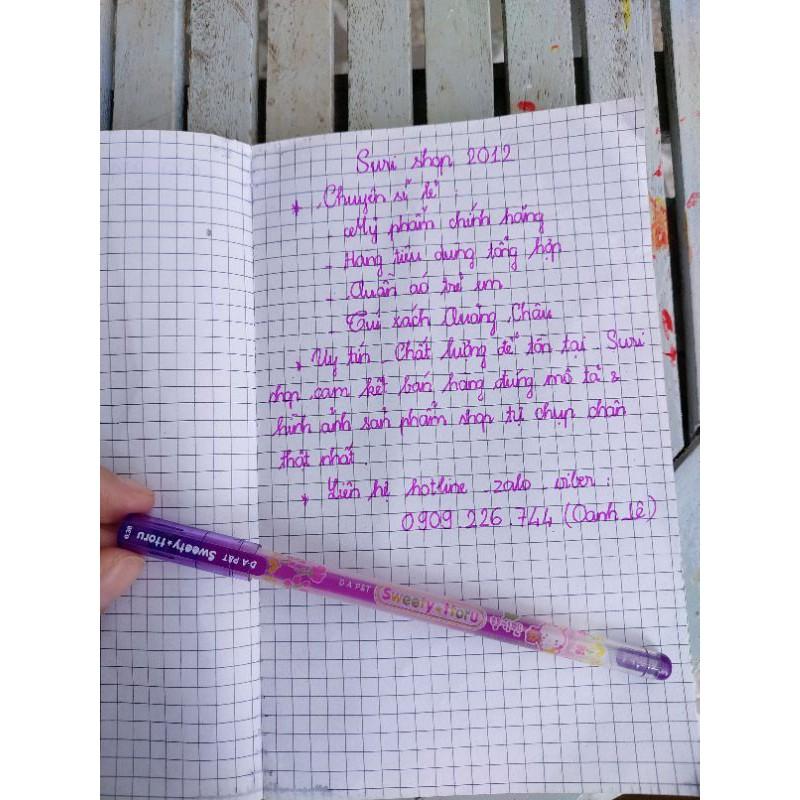 Suri shop 2012
* Chuyên sỉ lẻ :
- Mỹ phẩm chính hãng
- Hàng tiêu dùng tổng hợp
- Quần áo trẻ em
- Túi xách Quảng Châu
* Uy tín - Chất lượng để tồn tại. Suri
shop cam kết bán hàng đúng mô tả &
hình ảnh sản phẩm shop tự chụp chân
thật nhất.
* Liên hệ hotline zalo, viber :
0909 226 744 (Oanh Lê)
D·A P&T Sweety★Horu
D·A P&T Sweety★Horu